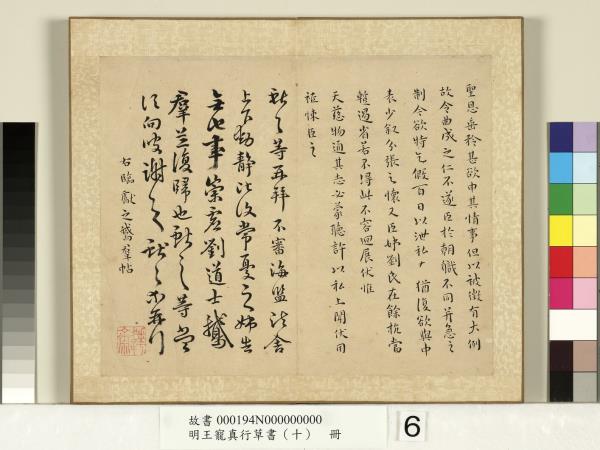 聖恩垂矜甚欲申其情事但以被徵有大例
故令曲成之仁不遂臣於朝職不同并急之
制令欲特乞假百日以泄私 猶復欲與中
表少叙分張之懷又臣姊劉氏在餘杭當
輒過省若不得此不容迴展伏惟
天慈物通其志必蒙聽許以私上聞伏用
祗悚臣之
獻之等再拜不審海鹽諸舍
上下動靜比復常憂之姊告
無他事崇虛劉道士鵝
羣並復歸也獻之等當
須向彼謝之獻之
右臨獻之鵞羣帖
故書 000194N000000000
明王寵真行草書（十） 冊
6